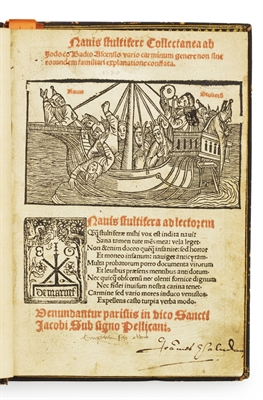 Nauis stultifere Collectanea ab
Jodoco Badio Ascensio vario carminum genere non sine
eorundem familiari explanatione conflata.
Nauis
Stultoru
Nauis stultifera ad lectorem
stultiferae mihi vox est indita naui
Sana tamen tute mes mea: vela leget
Non enim doceo insanire: sed hortor
Et moneo insanum: nauiget anticyram
Multa probatorum porro documenta virorum
Et leuibus praesens mentibus antidotum
Nec olenti fornice dignum
Nec fidei inuisum nostra carina tenet
Carmine sed vario mores induco venustos
Expellens casto turpia verba modo:
de marnef
Venundantur parisiis in vico Sancti
Jacobi Sub signo Pellicani.